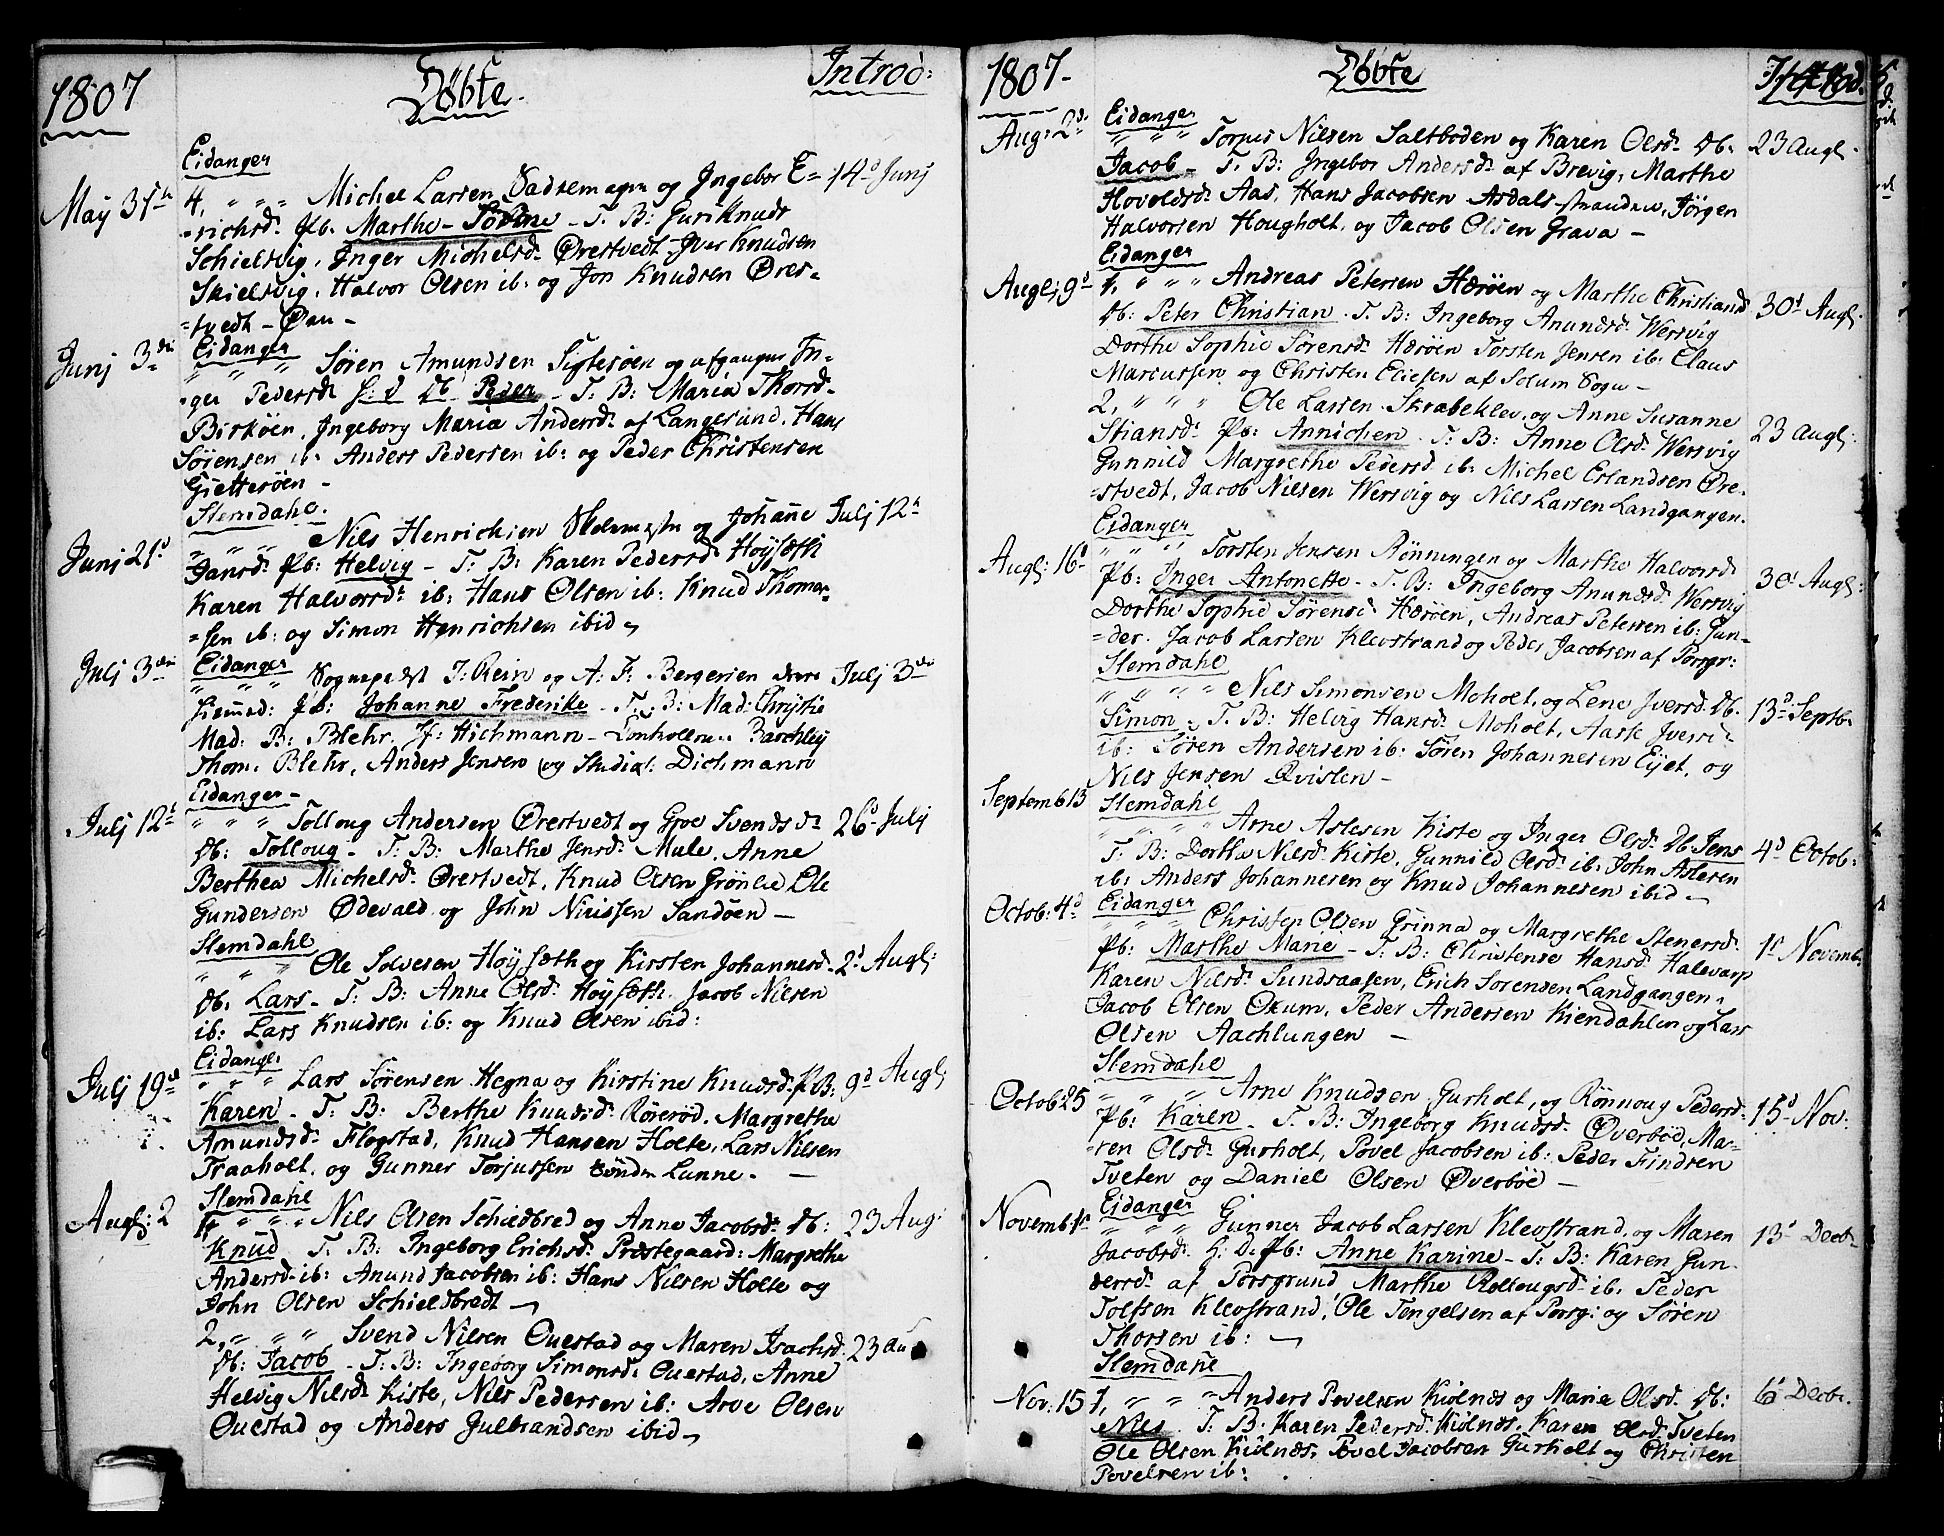 1807 Döbte. Introd:
Eidanger
May 31te 4, " " " Michel Larsen og Ingebor E= 14d Junj
=richsd. Pb. Marthe Sovine - T. B: Guri Knuds
Schielsvig, Inger Michelsd. Örestvedt Iver Knudsen
Skielsvig, Halvor Olsen ib: og Jon Knudsen Öres-
=tvedt - Öen -
Eidanger
Junj 3die " " " Sören Amundsen Sigtesöen og afgangne In-
=ger Pedersd. S: d Db. Peder - T. B: Maria Thorsd.
Birköen, Ingeborg Maria Andersd. af Langesund, Hans
Sörensen ib: Anders Pedersen ib: og Peder Christensen
Gjetteröen -
Slemdahl.
Junj 21d " " " Nils Henrichsen og Johanne Julj 12te
Jansd. Pb: Helvig - T. B: Karen Pedersd. Höysæth
Karen Halvorsd. ib: Hans Olsen ib: Knud Thomes-
=sen ib: og Simon Henrichsen ibid
Julj 3die Eidanger
" " " Sognepræst J: Rein og A. F. Bergersen Julj 3die
Pb: Johanne Frederike - T. B: Mad: Christie
Mad: B: Blehr. Barchley
Thom. Blehr, Anders Jensen og Studios: Dichmann
Eidanger -
Julj 12te " " " Tolloug Andersen Örestvedt og Gjoe Svendsd. 26d Julj
Db: Tolloug - T. B: Marthe Jensd. Mule, Anne
Berthea Michelsd. Örestvedt, Knud Olsen Grönlie Ole
Gundersen Ödevald og John Nirissen Sandöen -
Slemdahl
" " " Ole Solvesen Höysæth og Kirsten Johannesd. 2d Augl:
Db. Lars - T. B: Anne Olsd. Höysæth. Jacob Nilsen
ib: Lars Knudsen ib: og Knud Olsen ibid:
Eidang:
Julj 19de " " " Lars Sörensen Hegna og Kirstine Knudsd. Pb: 9d Augl:
Karen - T. B: Berthe Knudsd. Rörerød, Margrethe
Amundsd. Flogstad, Knud Hansen Holte, Lars Nilsen
Traaholt, og Gunner Torjussen Lunne. -
Slemdahl
Augl: 2 1, " " " Nils Olsen Schiedbred og Anne Jacobsd. Db: 23 Aug:
Knud T. B: Ingeborg Erichsd. Præstegaard: Margrethe
Andersd. ib: Anund Jacobsen ib: Hans Nilsen Holte og
John Olsen Schieldbredt
2, " " " Svend Nilsen Ouestad og Maren Isachsd. 23 Au
Db: Jacob - T. B: Ingeborg Simonsd. Ouestad, Anne
Helvig Nilsd. Kiste, Nils Pedersen ib: Arve Olsen
Ouestad og Anders Julbrandsen ibid
1807- Döbte
Eidanger
Aug: 2d " " " Torjus Nilsen Saltboden og Karen Olsd. Db: 23 Augl.
Jacob - T. B: Ingebor Andersd. af Brevig, Marthe
Hovoldsd. Aas, Hans Jacobsen Asdalstranden, Jörgen
Halvorsen Hougholt, og Jacob Olsen Grava -
Eidanger
Augl: 9d 1, " " " Andreas Petersen Heröen og Marthe Christiansd. 30d Augl:
Db: Peter Christian. T. B: Ingeborg Anundsd. Wersvig
Dorthe Sophie Sörensd. Heröen Torsten Jensen ib: Claus
Marcussen og Christen Eliesen af Solum Sogn -
2, " " " Ole Larsen Skrabeklev og Anne Susanne
Stiansd. Pb: Annichen. T. B: Anne Olsd. Wersvig 23 Augl:
Gunnild Margrethe Pedersd. ib: Michel Erlandsen Öre-
=stvedt, Jacob Nilsen Wersvig og Nils Larsen Landgangen.
Eidanger
Augl: 16d " " " Torsten Jensen Rönningen og Marthe Halvorsd.
Pb: Inger Antonette - T. B: Ingeborg Anundsd. Wersvig 30d Augl:
Dorthe Sophie Sörensd. Heröen, Andreas Petersen ib: Gun-
=der. Jacob Larsen Kleostrand og Peder Jacobsen af Porsgr:
Slemdahl
" " " " Nils Simonsen Moholt, og Lene Iversd. Db.
Simon - T. B: Helvig Hansd. Moholt, Aase Iversd. 13d Septb.
ib: Sören Andersen ib: Sören Johannesen Eyet, og
Nils Jensen Qvislen -
Septemb 13 Slemdahl
" " " " Arne Aslesen Kiste og Inger Olsd. Db. Jens
T. B: Dorthe Nilsd. Kiste, Gunnild Olsd. ib: John Aslesen 4d Octob:
ib: Anders Johannesen og Knud Johannesen ibid -
Octob: 4d Eidanger
" " " Christen Olsen Grinna og Margrethe Stenersd.
Pb: Marthe Marie - T. B: Christense Hansd. Halevarp 1d Novemb:
Karen Nilsd. Sundsaasen, Erich Sorensen Landgangen.
Jacob Olsen Oxum, Peder Andersen Kiendahlen og Lars
Olsen Aachlungen -
Slemdahl
Octob: 25 " " " Arne Knudsen Gurholt, og Rönnoug Pedersd.
Pb: Karen. T. B: Ingeborg Knudsd. Överböd, Ma- 15d Nov:
=ren Olsd. Gurholt, Povel Jacobsen ib: Peder Findsen
Tveten og Daniel Olsen Överböe -
Eidanger
Novemb 1d " " " Gunner Jacob Larsen Kleostrand, og Maren 13d Decb.
Jacobsd. S: D. Pb: Anne Karine - T. B: Karen Gun-
dersd. af Porsgrund Marthe Rollougsd. ib: Peder
Tolfsen Kleostrand, Ole Tengelsen af Porsg: og Sören
Thorsen ib:
Slemdahl
Nov: 15 1, " " " Anders Povelsen Kiölnæs og Marie Olsd. Db: 6d Decbr.
Nils. T. B: Karen Pedersd. Kiölnæs, Karen Olsd. Tveten
Ole Olsen Kiölnæs, Povel Jacobsen Gurholt og Christen
Povelsen ib: